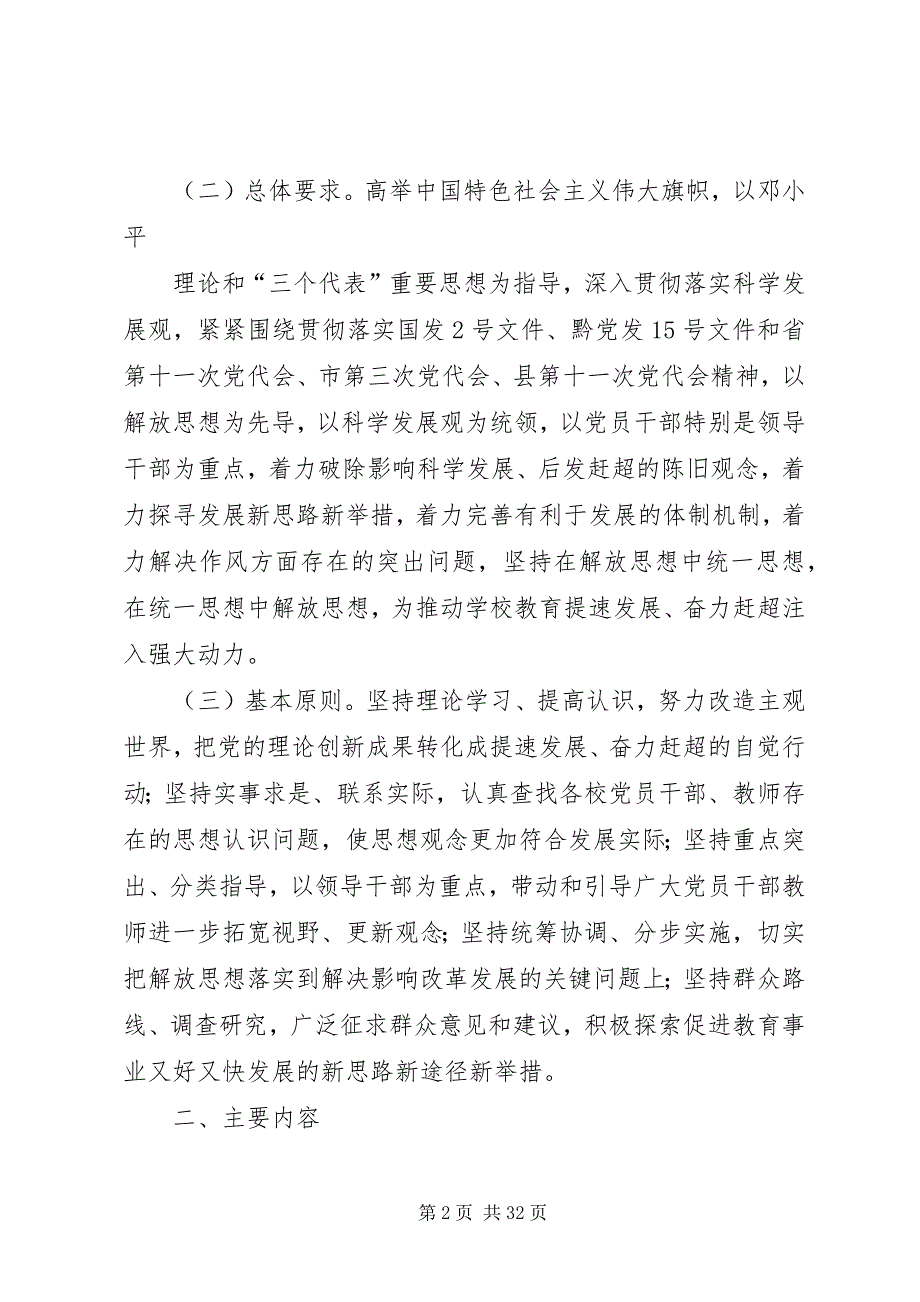 （二）总体要求。高举中国特色社会主义伟大旗帜，以邓小
平
理论和“三个代表”重要思想为指导，深入贯彻落实科学发
展观，紧紧围绕贯彻落实国发 2 号文件、黔党发 15 号文件和省
第十一次党代会、市第三次党代会、县第十一次党代会精神，以
解放思想为先导，以科学发展观为统领，以党员干部特别是领导
干部为重点，着力破除影响科学发展、后发赶超的陈旧观念，着
力探寻发展新思路新举措，着力完善有利于发展的体制机制，着
力解决作风方面存在的突出问题，坚持在解放思想中统一思想，
在统一思想中解放思想，为推动学校教育提速发展、奋力赶超注
入强大动力。
（三）基本原则。坚持理论学习、提高认识，努力改造主观
世界，把党的理论创新成果转化成提速发展、奋力赶超的自觉行
动；坚持实事求是、联系实际，认真查找各校党员干部、教师存
在的思想认识问题，使思想观念更加符合发展实际；坚持重点突
出、分类指导，以领导干部为重点，带动和引导广大党员干部教
师进一步拓宽视野、更新观念；坚持统筹协调、分步实施，切实
把解放思想落实到解决影响改革发展的关键问题上；坚持群众路
线、调查研究，广泛征求群众意见和建议，积极探索促进教育事
业又好又快发展的新思路新途径新举措。
二、主要内容
第 2 页 共 32 页